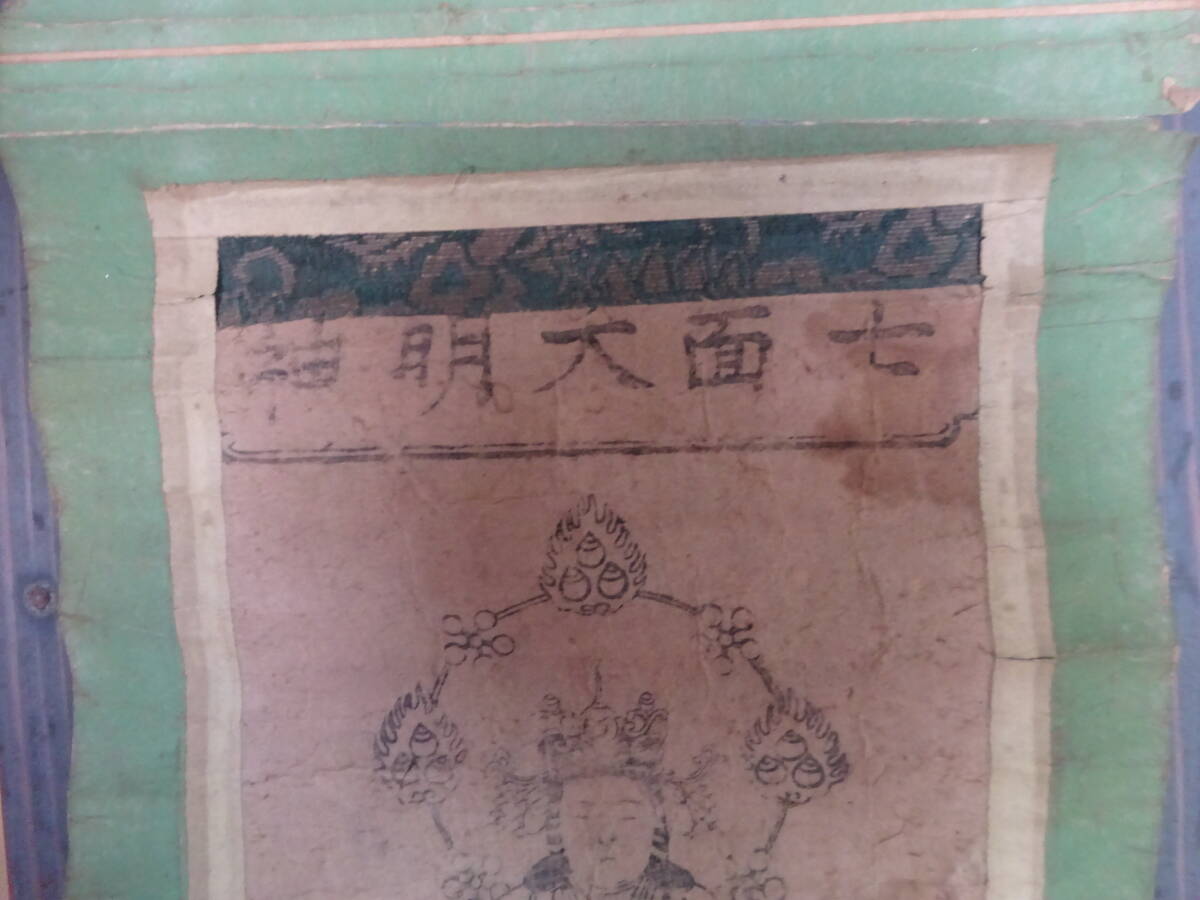 七面大明神